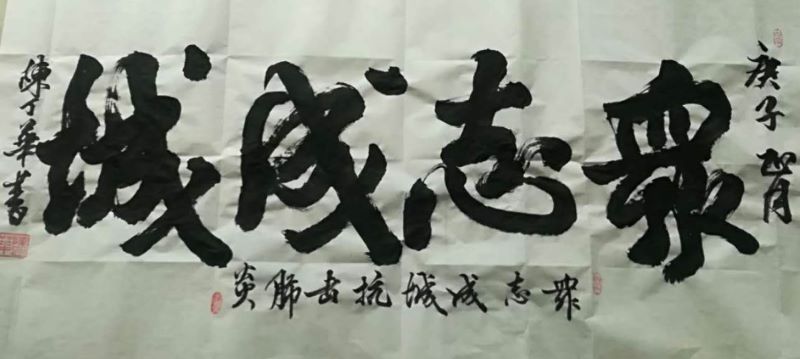 庚子正月
眾志成城
眾志成城抗击肺炎
陳丁華書